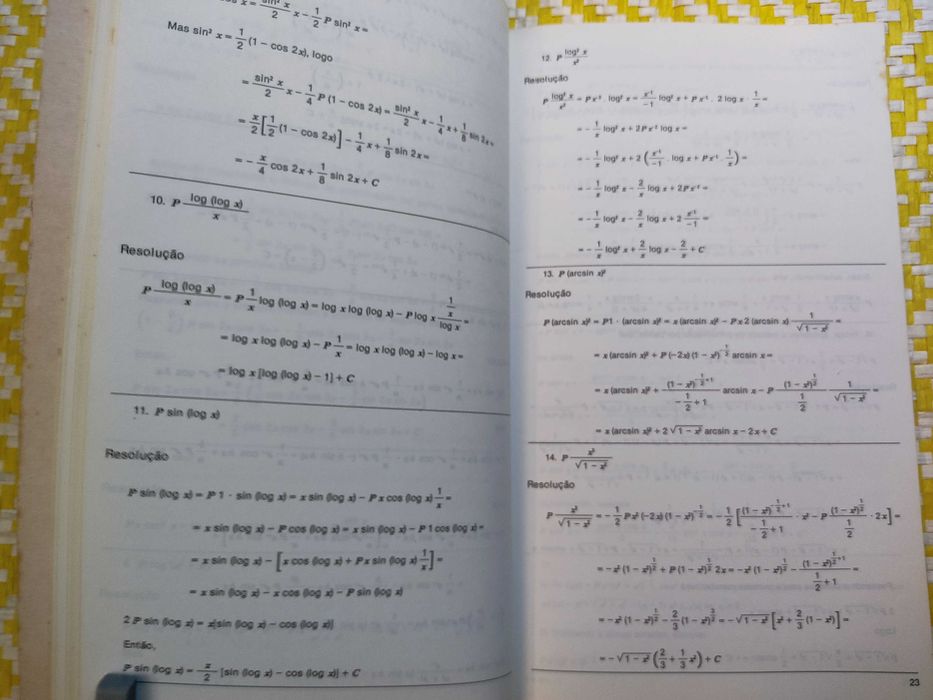 cos x = sin² x/2 x − 1/4 P sin² x =
Mas sin² x = 1/2 (1 − cos 2x), logo
= sin² x/2 x − 1/4 P (1 − cos 2x) = sin² x/2 x − 1/4 x + 1/8 sin 2x =
= x/2 [1/2 (1 − cos 2x)] − 1/4 x + 1/8 sin 2x =
= − x/4 cos 2x + 1/8 sin 2x + C
10. P log (log x)/x
Resolução
P log (log x)/x = P 1/x log (log x) = log x log (log x) − P log x (1/x)/(log x) =
= log x log (log x) − P 1/x = log x log (log x) − log x =
= log x [log (log x) − 1] + C
11. P sin (log x)
Resolução
P sin (log x) = P 1 · sin (log x) = x sin (log x) − P x cos (log x) 1/x =
= x sin (log x) − P cos (log x) = x sin (log x) − P 1 cos (log x) =
= x sin (log x) − [x cos (log x) + P x sin (log x) 1/x] =
= x sin (log x) − x cos (log x) − P sin (log x)
2 P sin (log x) = x[sin (log x) − cos (log x)]
Então,
P sin (log x) = x/2 [sin (log x) − cos (log x)] + C
12. P log² x/x²
Resolução
P log² x/x² = P x⁻² . log² x = x⁻¹/−1 log² x + P x⁻¹ . 2 log x · 1/x =
= − 1/x log² x + 2 P x⁻² log x =
= − 1/x log² x + 2 (x⁻¹/−1 . log x + P x⁻¹ . 1/x) =
= − 1/x log² x − 2/x log x + 2 P x⁻² =
= − 1/x log² x − 2/x log x + 2 x⁻¹/−1 =
= − 1/x log² x + 2/x log x − 2/x + C
13. P (arcsin x)²
Resolução
P (arcsin x)² = P 1 · (arcsin x)² = x (arcsin x)² − P x 2 (arcsin x) 1/√(1 − x²) =
= x (arcsin x)² + P (−2x) (1 − x²)^(−1/2) arcsin x =
= x (arcsin x)² + (1 − x²)^(−1/2 + 1)/(−1/2 + 1) arcsin x − P (1 − x²)^(1/2)/(1/2) · 1/√(1 − x²) =
= x (arcsin x)² + 2 √(1 − x²) arcsin x − 2x + C
14. P x³/√(1 − x²)
Resolução
P x³/√(1 − x²) = − 1/2 P x² (−2x) (1 − x²)^(−1/2) = − 1/2 [(1 − x²)^(−1/2 + 1)/(−1/2 + 1) · x² − P (1 − x²)^(1/2)/(1/2) · 2x] =
= −x² (1 − x²)^(1/2) + P (1 − x²)^(1/2) 2x = −x² (1 − x²)^(1/2) − (1 − x²)^(1/2 + 1)/(1/2 + 1) =
= −x² (1 − x²)^(1/2) − 2/3 (1 − x²)^(3/2) = −√(1 − x²) [x² + 2/3 (1 − x²)] =
= −√(1 − x²) (2/3 + 1/3 x²) + C
23